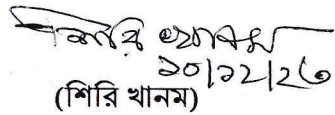 শিরি খানম
১০/১২/২৩
(শিরি খানম)